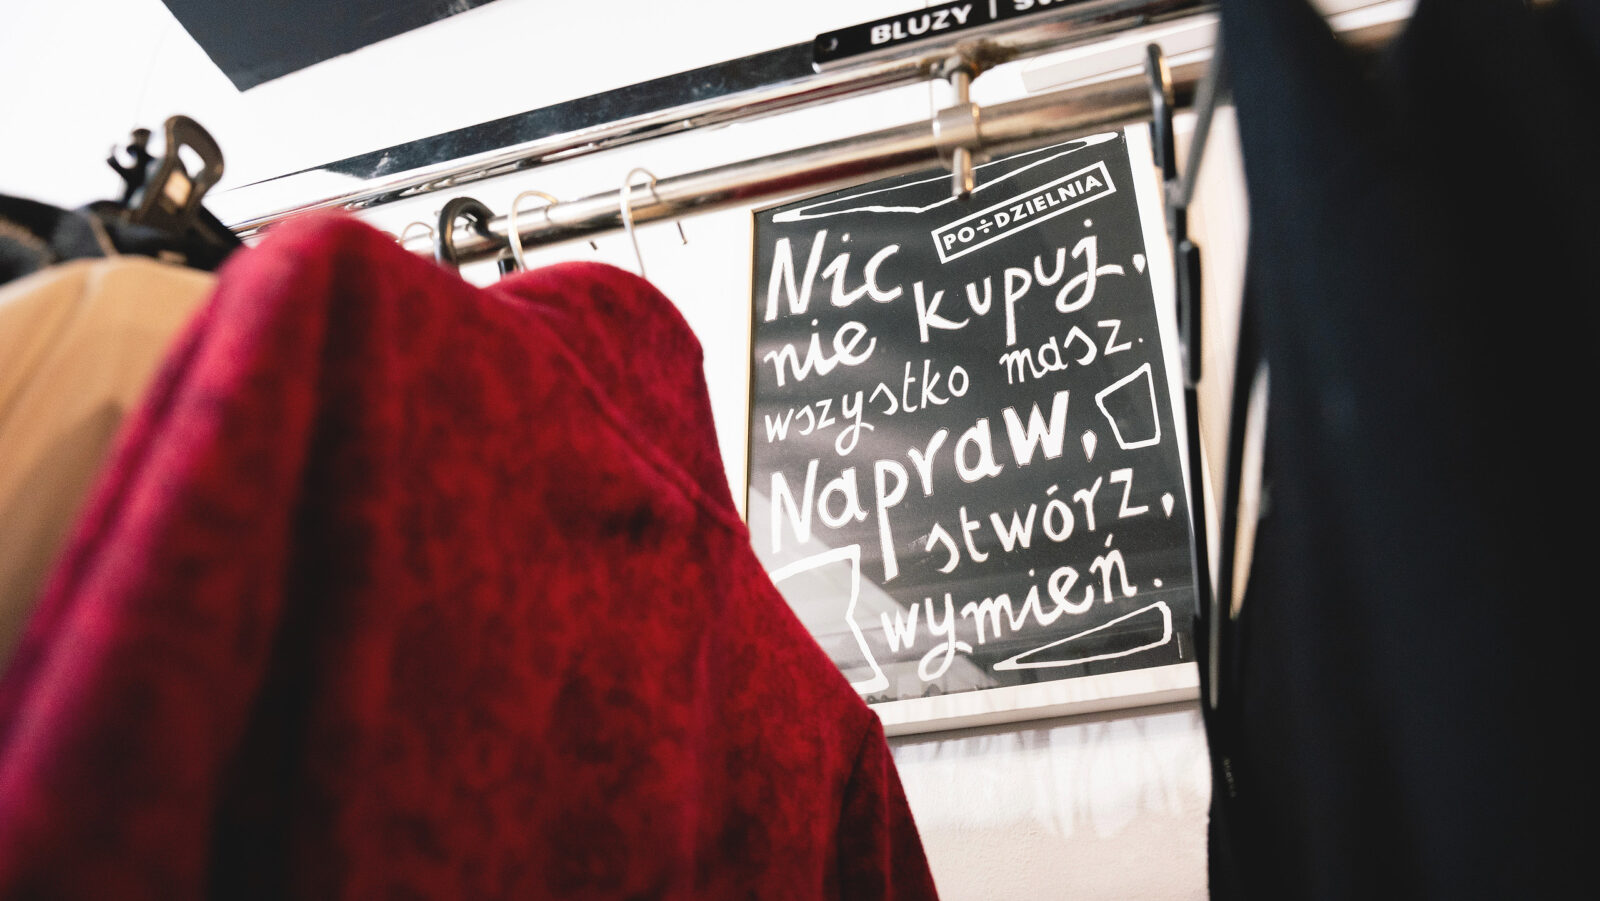 BLUZY |
PO÷DZIELNIA
Nic
nie kupuj,
wszystko masz.
Napraw,
stwórz,
wymień.